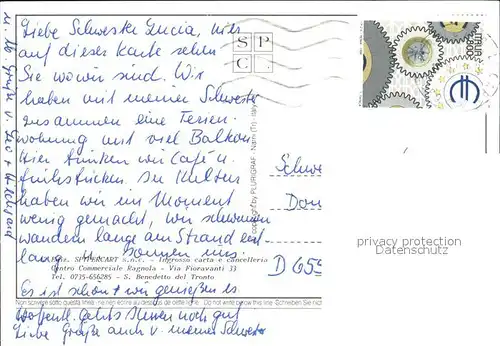 Liebe Schwester Lucia, hier
auf dieser Karte sehen
Sie wo wir sind. Wir
haben mit meiner Schwester
zusammen eine Ferien
wohnung mit viel Balkon.
Hier trinken wir Café u.
frühstücken. In Kultur
haben wir im Moment
wenig gemacht, wir schwimmen
wandern lange am Strand ent-
lang u. sonnen uns.
Es ist schön + wir genießen es.
Hoffentl. geht's Ihnen noch gut
Liebe Grüße auch v. meiner Schwester
S P
C
ITALIA
copyright by PLURIGRAF - Narni (Tr)
Schwe
Don
D 655
privacy protection
Datenschutz
Diz. SPITHCART s.n.c. - Ingrosso carta e cancelleria
Centro Commerciale Ragnola - Via Fioravanti 33
Tel. 0735-656285 - S. Benedetto del Tronto
Non scrivere sotto questa linea - Ne rien écrire au dessous de cette ligne - Do not write below this line - Schreiben Sie nicht